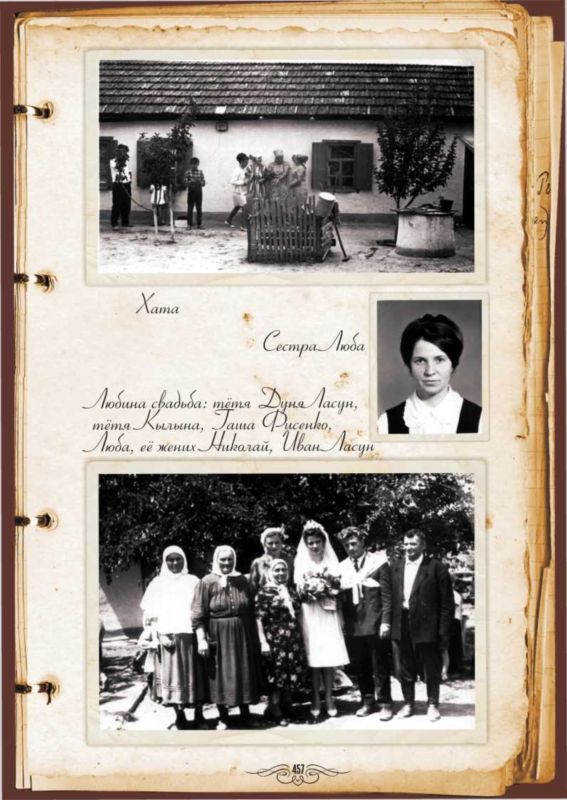 Хата
Сестра Люба
Любина свадьба: тётя Дуня Ласун,
тётя Кылына, Гаша Фисенко,
Люба, её жених Николай, Иван Ласун
457